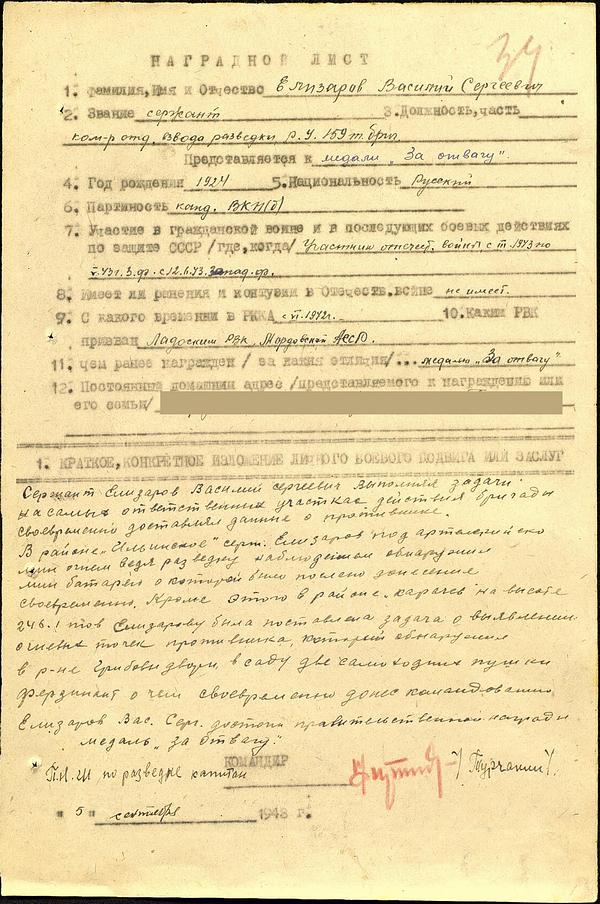 34
НАГРАДНОЙ ЛИСТ
1. Фамилия, Имя и Отчество Елизаров Василий Сергеевич
2. Звание сержант 3. Должность, часть
ком-р отд. взвода разведки р.у. 159 т. бриг
Представляется к медали „За отвагу".
4. Год рождения 1924 5. Национальность Русский
6. Партиность канд. ВКП(б)
7. Участие в гражданской войне и в последующих боевых действиях
по защите СССР /где, когда/ Участник отечеств. войны с
с 12.
8. Имеет ли ранения и контузии в Отечеств. войне не имеет.
9. С какого времени в РККА с VI. 1942г. 10. Каким РВК
призван Ладоским РВК, Мордовской АССР.
11. чем ранее награжден /за какия отлиция/... медалью „За отвагу"
12. Постоянный домашний адрес /представляемого к награждению или
его семьи/
1. КРАТКОЕ, КОНКРЕТНОЕ ИЗЛОЖЕНИЕ ЛИЧНОГО БОЕВОГО ПОДВИГА ИЛИ ЗАСЛУГ
Сержант Елизаров Василий Сергеевич выполняя задачи
на самых ответственних участках действия бригады
своевременно доставлял данные о противнике.
В районе „Ильинское" серж. Елизаров под артелерийско
мин огнем ведя разведку наблюдением обнаружил
мин батарею о которой было послено донесение
своевременно. Кроме этого в районе Карачев на высоте
246.1 тов Елизарову была поставлена задача о выявлении
огневых точек противника, который обнаружил
в р-не Грибовы дворы, в саду две самоходних пушки
Фердинант о чем своевременно донес командованию
Елизаров Вас. Серг. достоин правительственной награды
медаль „за отвагу."
КОМАНДИР
П.Н.Ш по разведке капитан /Турчанин/.
" 5 " сентября 1943 г.